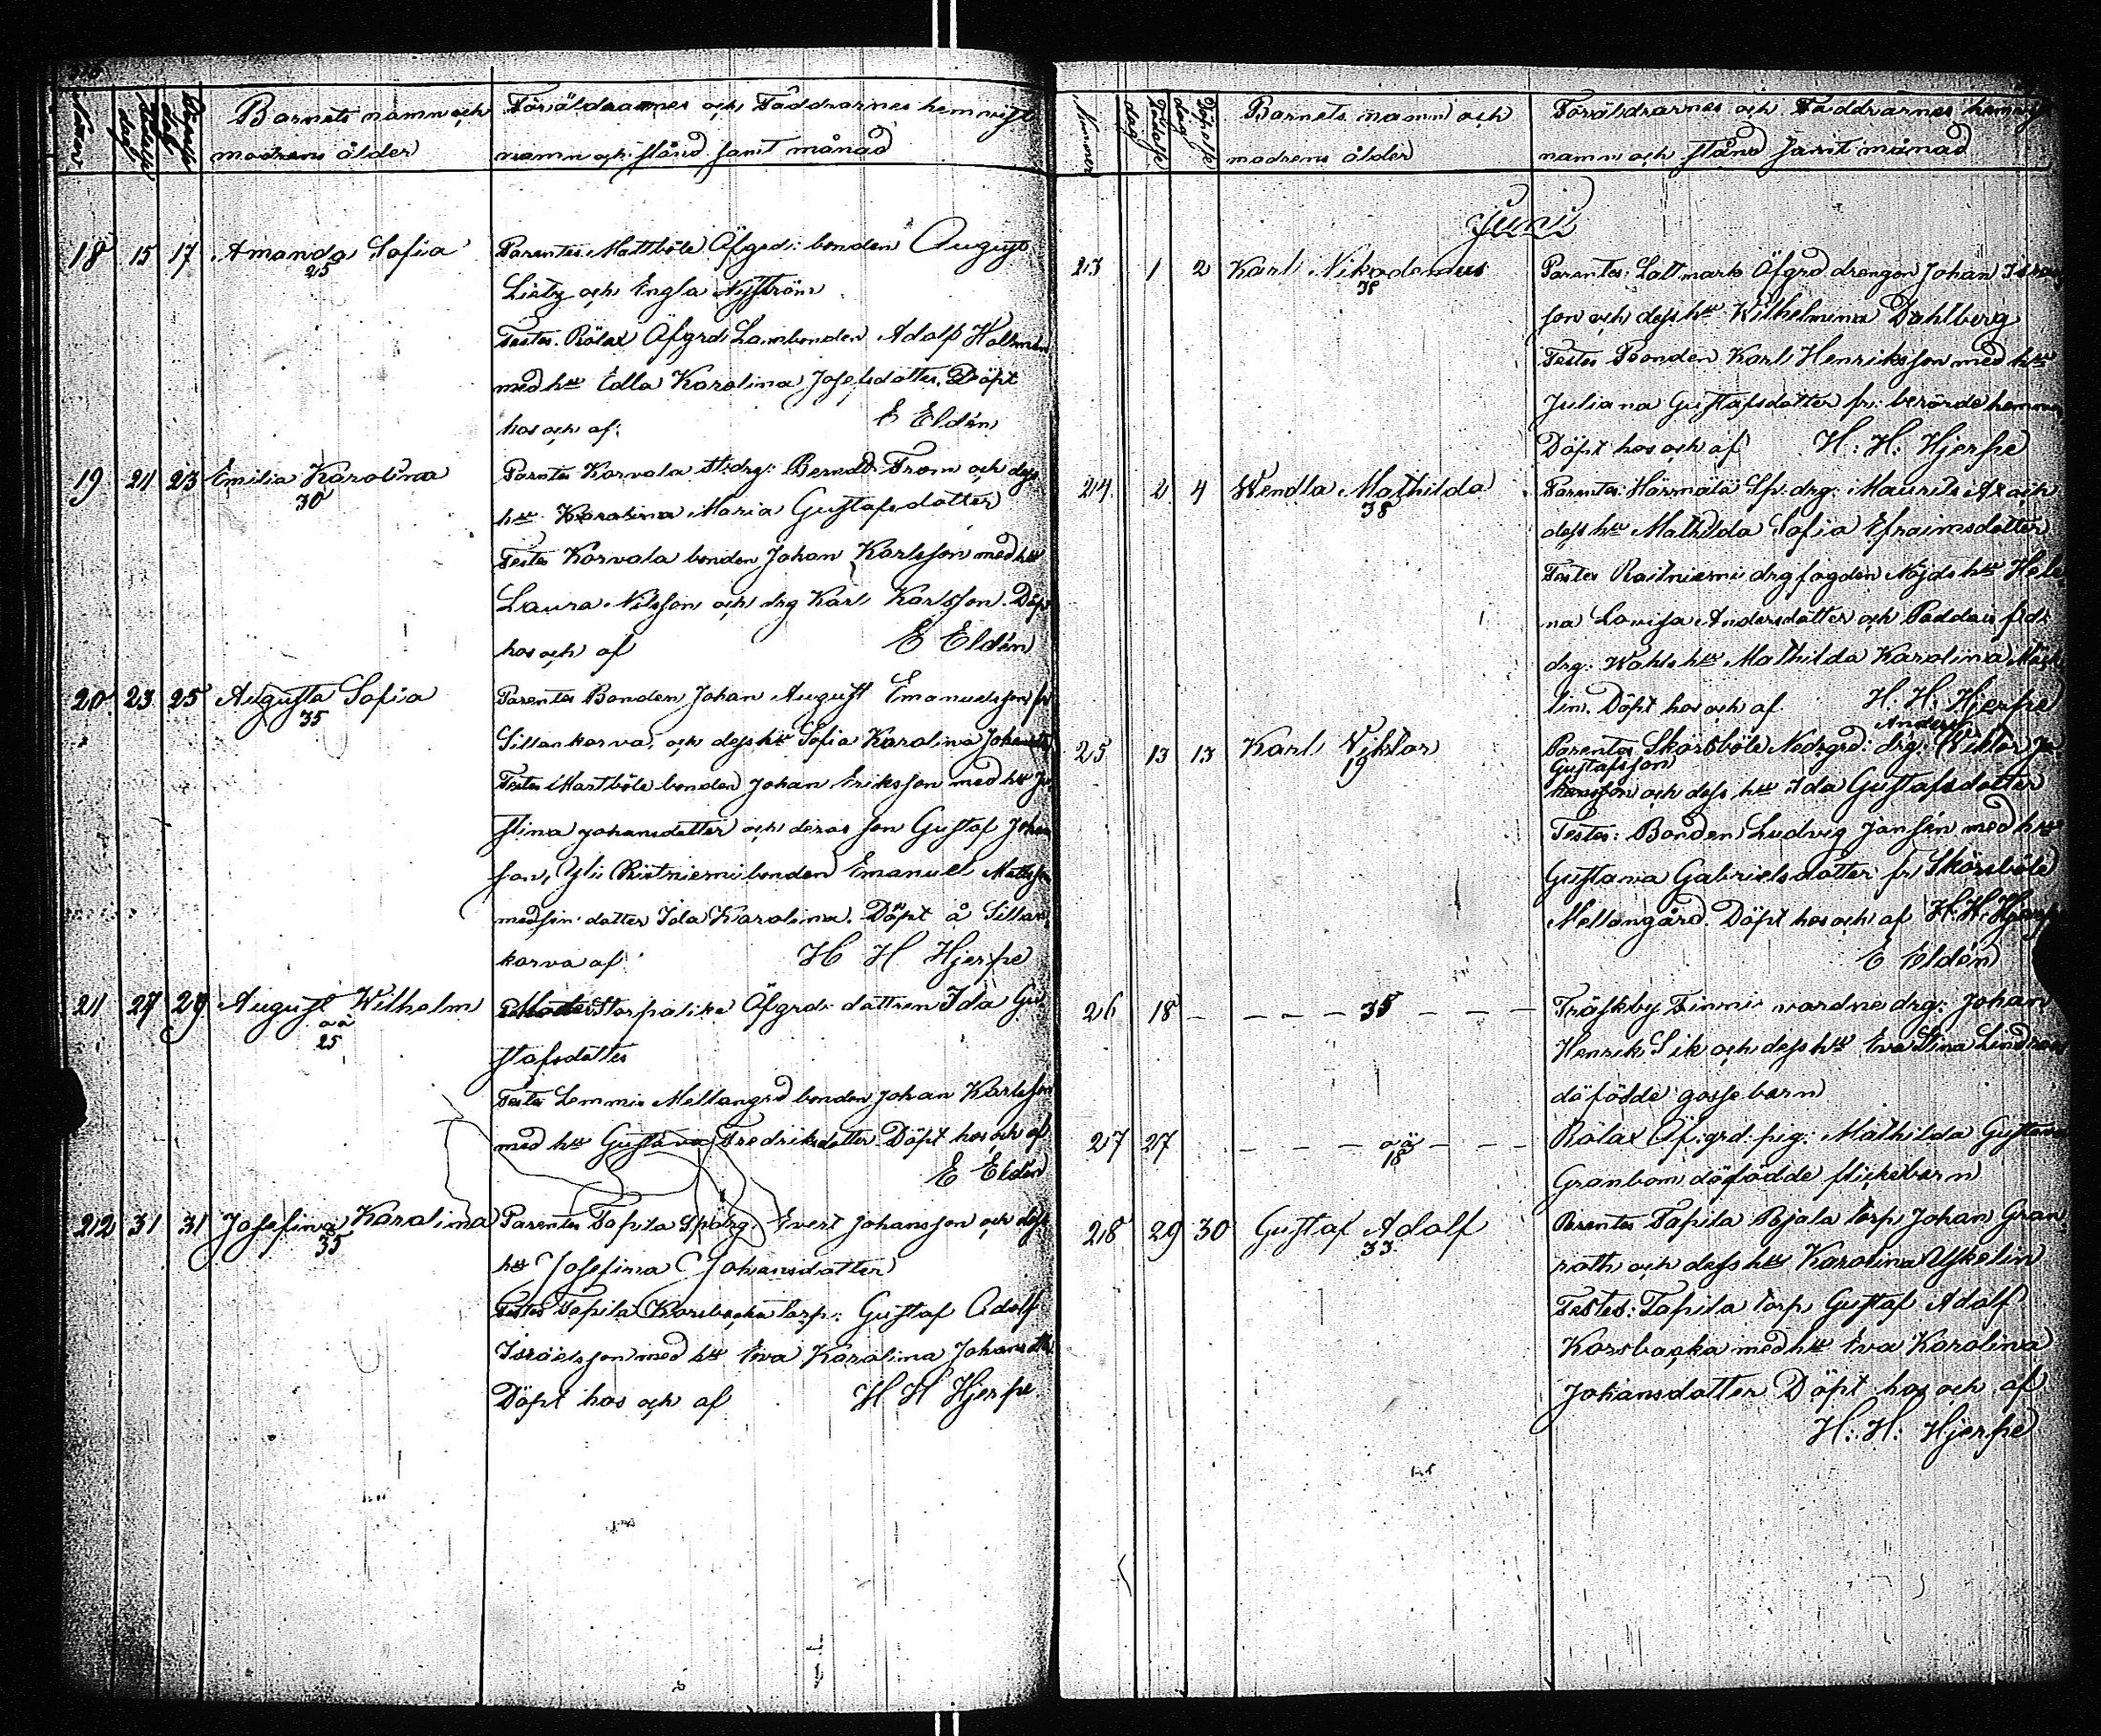 Nummer
Födelse dag
Döpelse dag
Barnets namn och
modrens ålder
Föräldrarnes och Faddrarnes hemvist
namn och stånd samt månad
18 15 17 Amanda Sofia
25
Parentes Mattböle Öfgrd: bonden August
Lietz och Engla Nyström
Testes. Rölax Öfgrds Lambonden Adolf Holmén
med hu Edla Karolina Josefsdotter. Döpt
hos och af: E Eldén
19 21 23 Emilia Karolina
30
Parentes Korvala st:drg: Berndt From och dess
hu Karolina Maria Gustafsdotter
Testes Korvala bonden Johan Karlsson med hu
Laura Nilsson och drg Karl Karlsson. Döpt
hos och af E Eldén
20 23 25 Augusta Sofia
35
Parentes Bonden Johan August Emanuelsson fr
Sillankorva, och dess hu Sofia Karolina
Testes Martböle bonden Johan Eriksson med hu Ju
stina Johansdotter och deras son Gustaf Johans
son, Yli Ristniemi bonden Emanuel Mattsson
med sin dotter Ida Karolina. Döpt å Sillan
korva af H H Hjerpe
21 27 29 August Wilhelm
oä
25
Moder Storpalike Öfgrds dottren Ida Gu
stafsdotter
Testes Lemmis Mellangrd bonden Johan Karlsson
med hu Gustava Fredriksdotter Döpt hos och af
E Eldén
22 31 31 Josefina Karolina
35
Parentes Tapila Spdrg. Evert Johansson och dess
hu Josefina Johansdotter
Testes Tapila Korsbacka torp: Gustaf Adolf
Israelsson med hu Eva Karolina Johansdtr
Döpt hos och af H H Hjerpe
Nummer
Födelse dag
Döpelse dag
Barnets namn och
modrens ålder
Föräldrarnes och Faddrarnes hemvist
namn och stånd samt månad
Juni
23 1 2 Karl Nikodemus
38
Parentes: Lattmark Öfgrd drengen Johan Israels
son och dess hu Wilhelmina Dahlberg
Testes Bonden Karl Henriksson med hu
Juliana Gustafsdotter fr: berörde hemman
Döpt hos och af H: H: Hjerpe
24 2 4 Wendla Mathilda
38
Parentes: Härmälä Sp. drg: Maurits Ax och
dess hu Mathilda Sofia Efraimsdotter
Testes Raitniemi drg fogden Nöjds hu Hele
na Lovisa Andersdotter och Paddais
drg: Wahls hu Mathilda Karolina
lin. Döpt hos och af H. H. Hjerpe
Anders
25 13 13 Karl Viktor
19
Parentes Skärsböle Nedrgrd: drg: Viktor Jo
Gustafsson
hansson och dess hu Ida Gustafsdotter
Testes: Bonden Ludvig Jansén med hu
Gustava Gabrielsdotter fr Skärsböle
Mellangård. Döpt hos och af H. H. Hjerpe
E Eldén
26 18 – – – – 35 – – –
Träskby Finni vardne drg: Johan
Henrik Sik och dess hu Eva Stina Lindroos
döfödde gossebarn
27 27 – – – oä – – –
18
Rölax Öf:grd: pig: Mathilda Gustava
Granbom döfödde flickebarn
28 29 30 Gustaf Adolf
33
Parentes Tapila Bjala torp Johan Gran
roth och dess hu Karolina Uskelin
Testes: Tapila torp Gustaf Adolf
Korsbacka med hu Eva Karolina
Johansdotter Döpt hos och af
H: H: Hjerpe